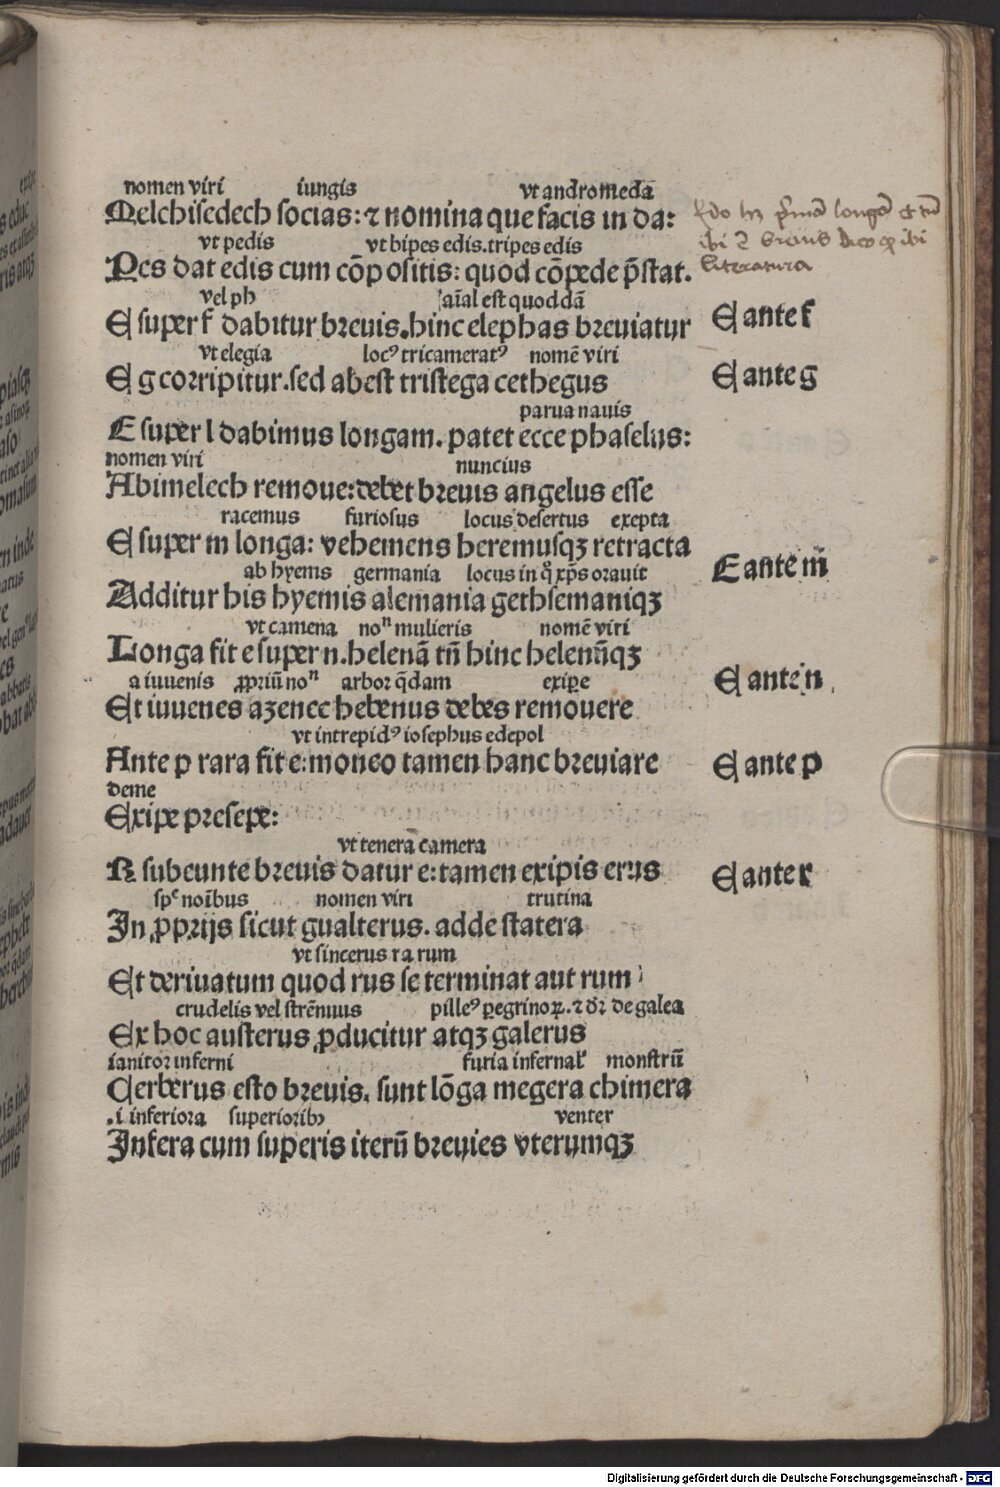 nomen viri iungis vt andromedā
Melchisedech socias: ⁊ nomina que facis in da:
vt pedis vt bipes edis.tripes edis
Pes dat edis cum cōpositis: quod cōpede p̄stat.
vel ph aīal est quoddā
E super f dabitur breuis.hinc elephas breuiatur
E ante f
vt elegia locꝰ tricameratꝰ nomē viri
E g corripitur.sed abest tristega cethegus
E ante g
parua nauis
E super l dabimus longam. patet ecce phaselus:
nomen viri nuncius
Abimelech remoue:debet breuis angelus esse
racemus furiosus locus desertus exepta
E super m longa: vehemens heremusqꝫ retracta
E ante m
ab hyems germania locus in q̄ xp̄s orauit
Additur his hyemis alemania gethsemaniqꝫ
vt camena noⁿ mulieris nomē viri
Longa fit e super n.helenā tn̄ hinc helenūqꝫ
E ante n
a iuuenis ꝓpriū noⁿ arbor q̄dam exipe
Et iuuenes azenec hebenus debes remouere
vt intrepidꝰ iosephus edepol
Ante p rara fit e:moneo tamen hanc breuiare
E ante p
deme
Exipe presepe:
vt tenera camera
R subeunte breuis datur e:tamen exipis erus
E ante r
spᵉ noībus nomen viri trutina
In ꝓprijs sicut gualterus. adde statera
vt sincerus rarum
Et deriuatum quod rus se terminat aut rum
crudelis vel strēnuus pilleꝰ ꝑegrinoꝝ. ⁊ dr̄ de galea
Ex hoc austerus ꝓducitur atqꝫ galerus
ianitor inferni furia infernal' monstrū
Cerberus esto breuis. sunt lōga megera chimera
.i inferiora superioribꝫ venter
Infera cum superis iterū breuies vterumqꝫ
literatura
Digitalisierung gefördert durch die Deutsche Forschungsgemeinschaft - DFG